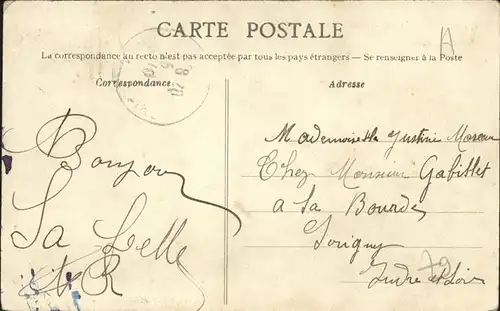 CARTE POSTALE
La correspondance au recto n'est pas acceptée par tous les pays étrangers — Se renseigner à la Poste
Correspondance
Bonjour
La Belle
Adresse
Mademoiselle Justine Moreau
Chez Monsieur Gabillet
a La Bourde
Sorigny
Indre et Loire
A